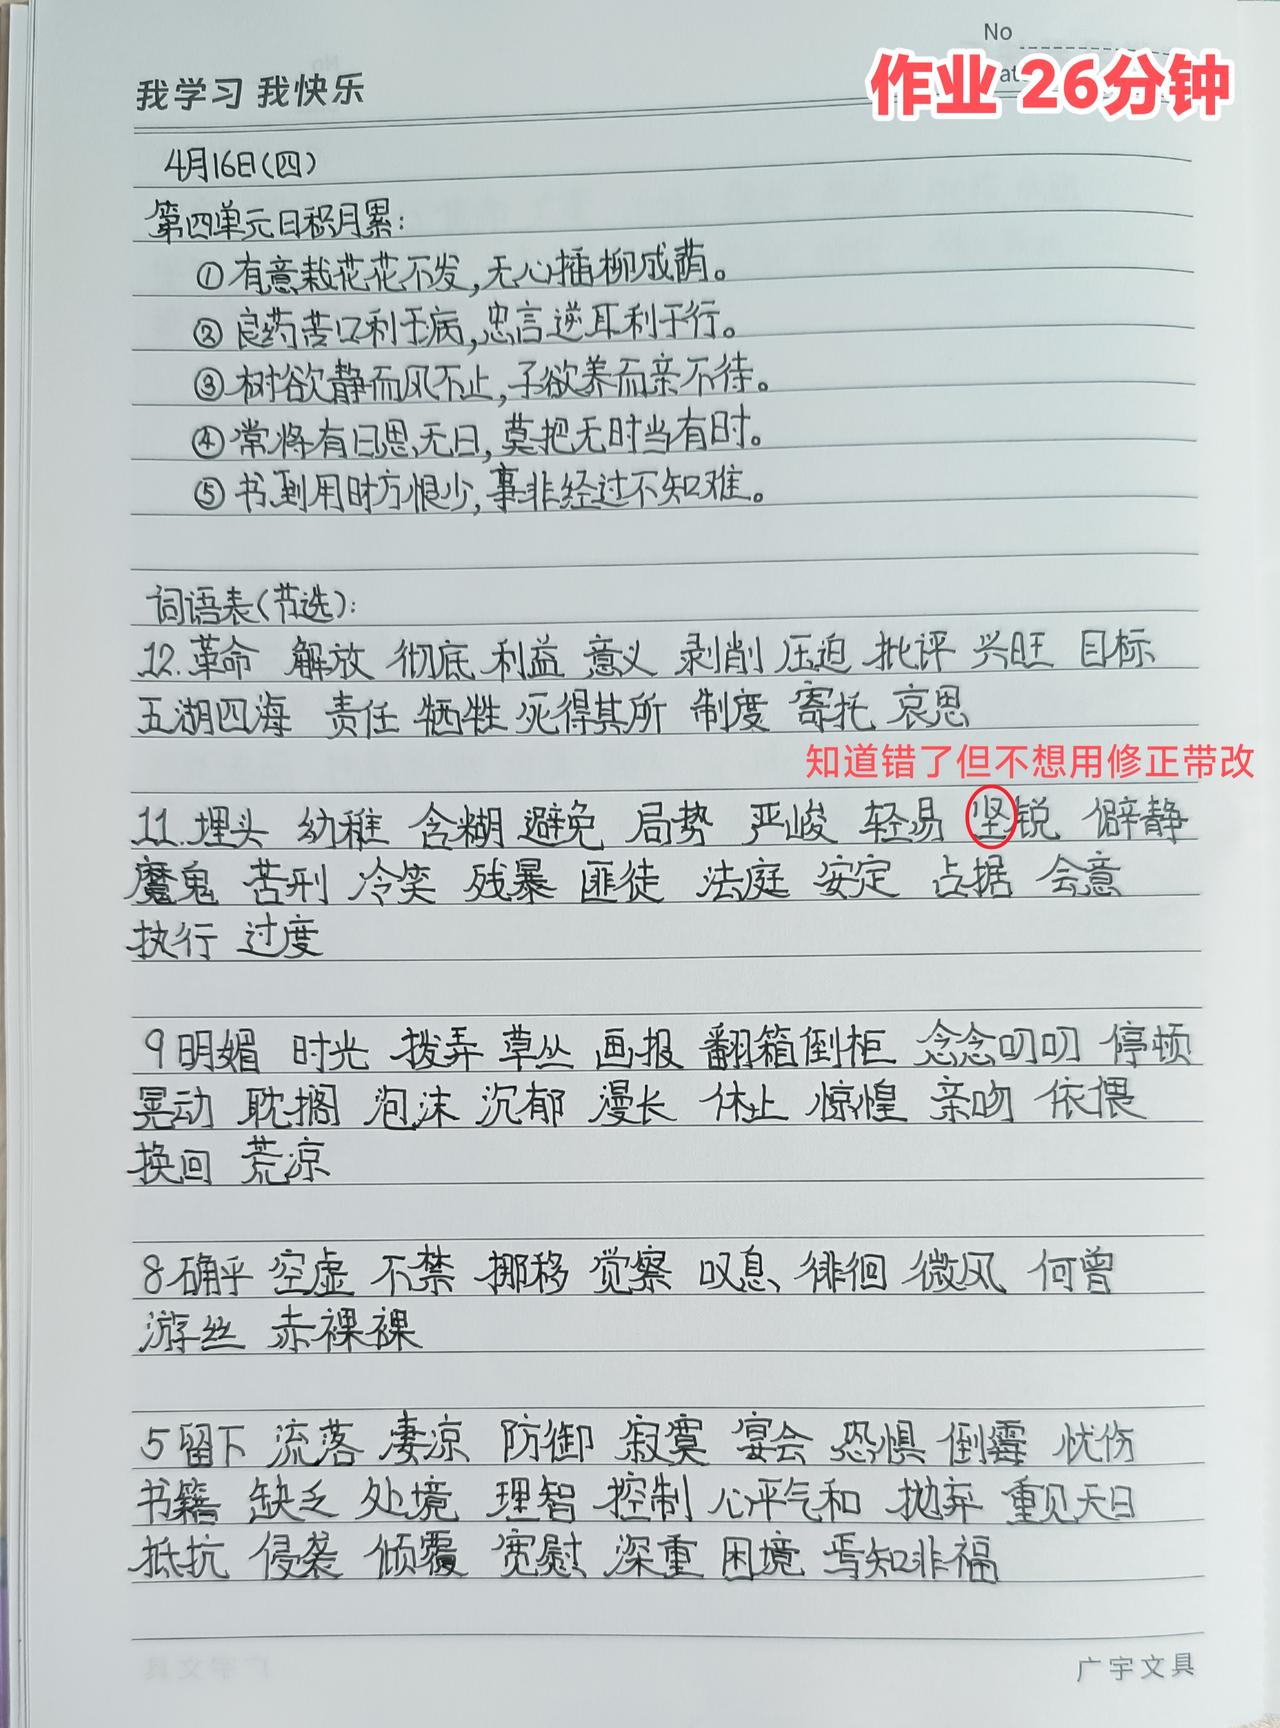 No
我学习 我快乐
作业 26分钟
4月16日(四)
第四单元日积月累:
①有意栽花花不发,无心插柳成荫。
②良药苦口利于病,忠言逆耳利于行。
③树欲静而风不止,子欲养而亲不待。
④常将有日思无日,莫把无时当有时。
⑤书到用时方恨少,事非经过不知难。
词语表(节选):
12.革命 解放 彻底 利益 意义 剥削 压迫 批评 兴旺 目标
五湖四海 责任 牺牲 死得其所 制度 寄托 哀思
知道错了但不想用修正带改
11.埋头 幼稚 含糊 避免 局势 严峻 轻易 坚锐 僻静
魔鬼 苦刑 冷笑 残暴 匪徒 法庭 安定 占据 会意
执行 过度
9明媚 时光 拨弄 草丛 画报 翻箱倒柜 念念叨叨 停顿
晃动 耽搁 泡沫 沉郁 漫长 休止 惊惶 亲吻 依偎
换回 荒凉
8确乎 空虚 不禁 挪移 觉察 叹息 徘徊 微风 何曾
游丝 赤裸裸
5留下 流落 凄凉 防御 寂寞 宴会 恐惧 倒霉 忧伤
书籍 缺乏 处境 理智 控制 心平气和 抛弃 重见天日
抵抗 侵袭 倾覆 宽慰 深重 困境 焉知非福
广宇文具